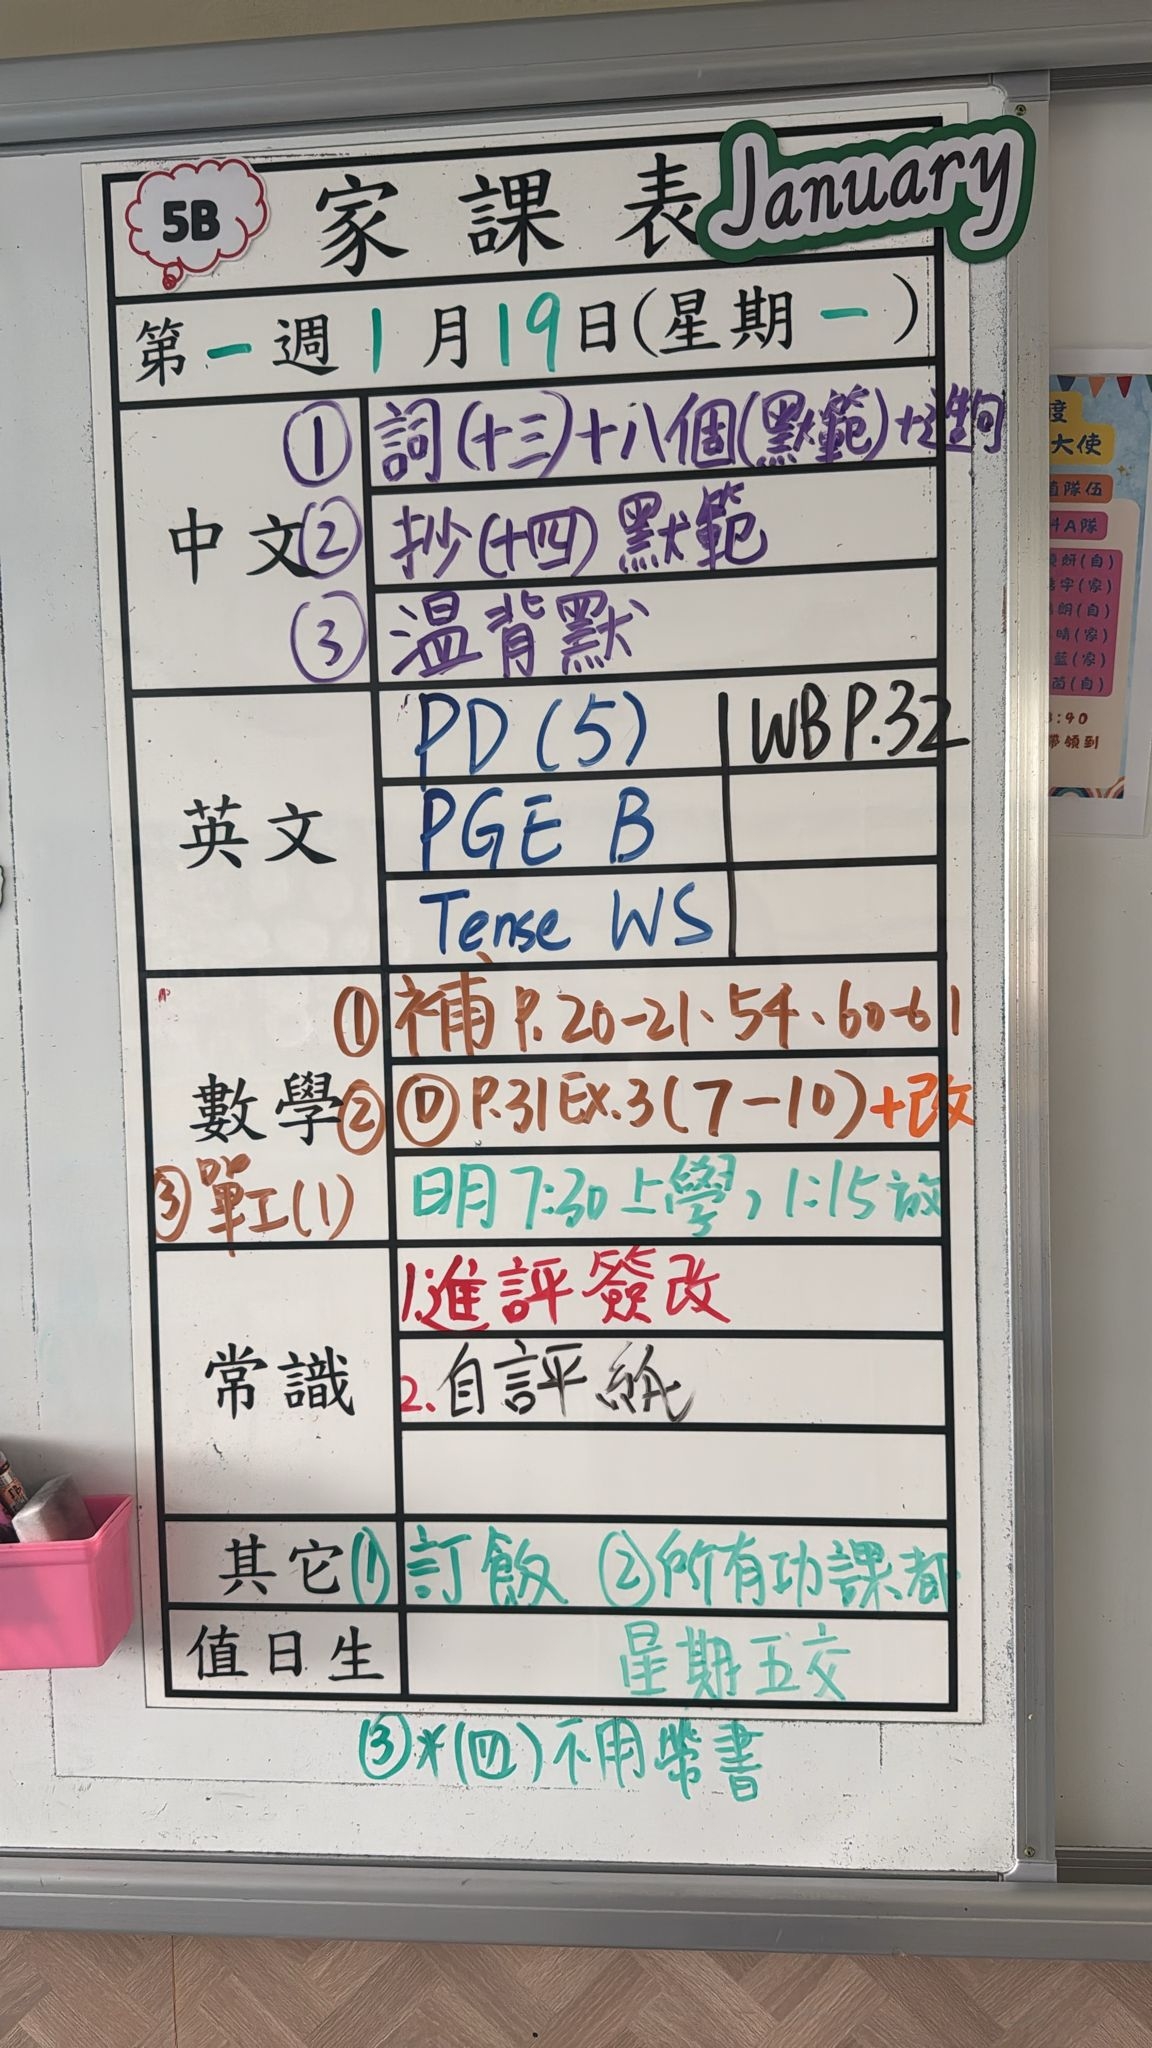 5B 家課表 January
第一週 1月19日(星期一)
中文
① 詞(十三)十八個(默範)+造句
② 抄(十四) 默範
③ 温背默
英文
PD (5) WB P.32
PGE B
Tense WS
數學
① 補 P.20-21、54、60-61
② Ⓓ P.31 Ex.3 (7-10) +改
③ 單工(1)
明月 7:30 上學, 1:15 放
常識
1. 進評簽改
2. 自評紙
其它 ① 訂飯 ② 所有功課都
值日生 星期五交
③*(四)不用帶書
度
大使
直隊伍
4A隊
妍(自)
字(家)
朗(自)
晴(家)
藍(家)
茵(自)
:40
帶領到